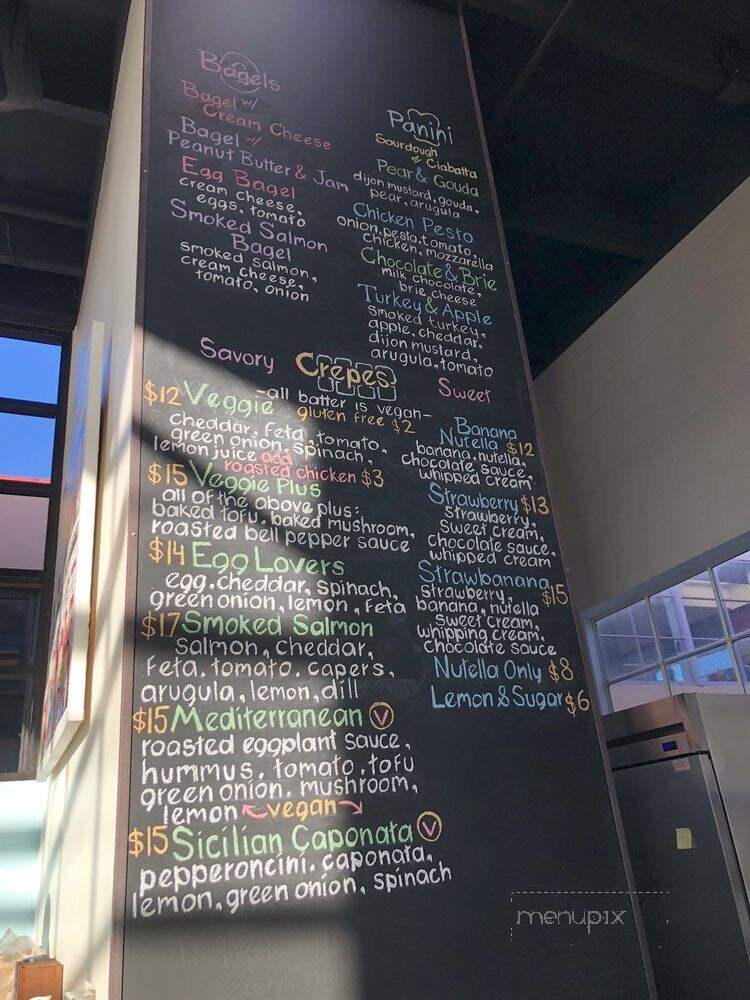 Bagels
Bagel w/
Cream Cheese
Bagel w/
Peanut Butter & Jam
Egg Bagel
cream cheese,
eggs, tomato
Smoked Salmon
Bagel
smoked salmon,
cream cheese,
tomato, onion
Panini
Sourdough
or Ciabatta
Pear & Gouda
dijon mustard, gouda,
pear, arugula
Chicken Pesto
onion, pesto, tomato,
chicken, mozzarella
Chocolate & Brie
milk chocolate,
brie cheese
Turkey & Apple
smoked turkey,
apple, cheddar,
dijon mustard,
arugula, tomato
Savory Crepes Sweet
-all batter is vegan-
gluten free $2
$12 Veggie
cheddar, feta, tomato,
green onion, spinach,
lemon juice add
roasted chicken $3
$15 Veggie Plus
all of the above plus:
baked tofu, baked mushroom,
roasted bell pepper sauce
$14 Egg Lovers
egg, cheddar, spinach,
green onion, lemon, feta
$17 Smoked Salmon
salmon, cheddar,
feta, tomato, capers,
arugula, lemon, dill
$15 Mediterranean V
roasted eggplant sauce,
hummus, tomato, tofu
green onion, mushroom,
lemon vegan
$15 Sicilian Caponata V
pepperoncini, caponata,
lemon, green onion, spinach
Banana
Nutella $12
banana, nutella,
chocolate sauce,
whipped cream
Strawberry $13
strawberry,
sweet cream,
chocolate sauce,
whipped cream
Strawbanana $15
strawberry,
banana, nutella
sweet cream,
whipping cream,
chocolate sauce
Nutella Only $8
Lemon & Sugar $6
menupix